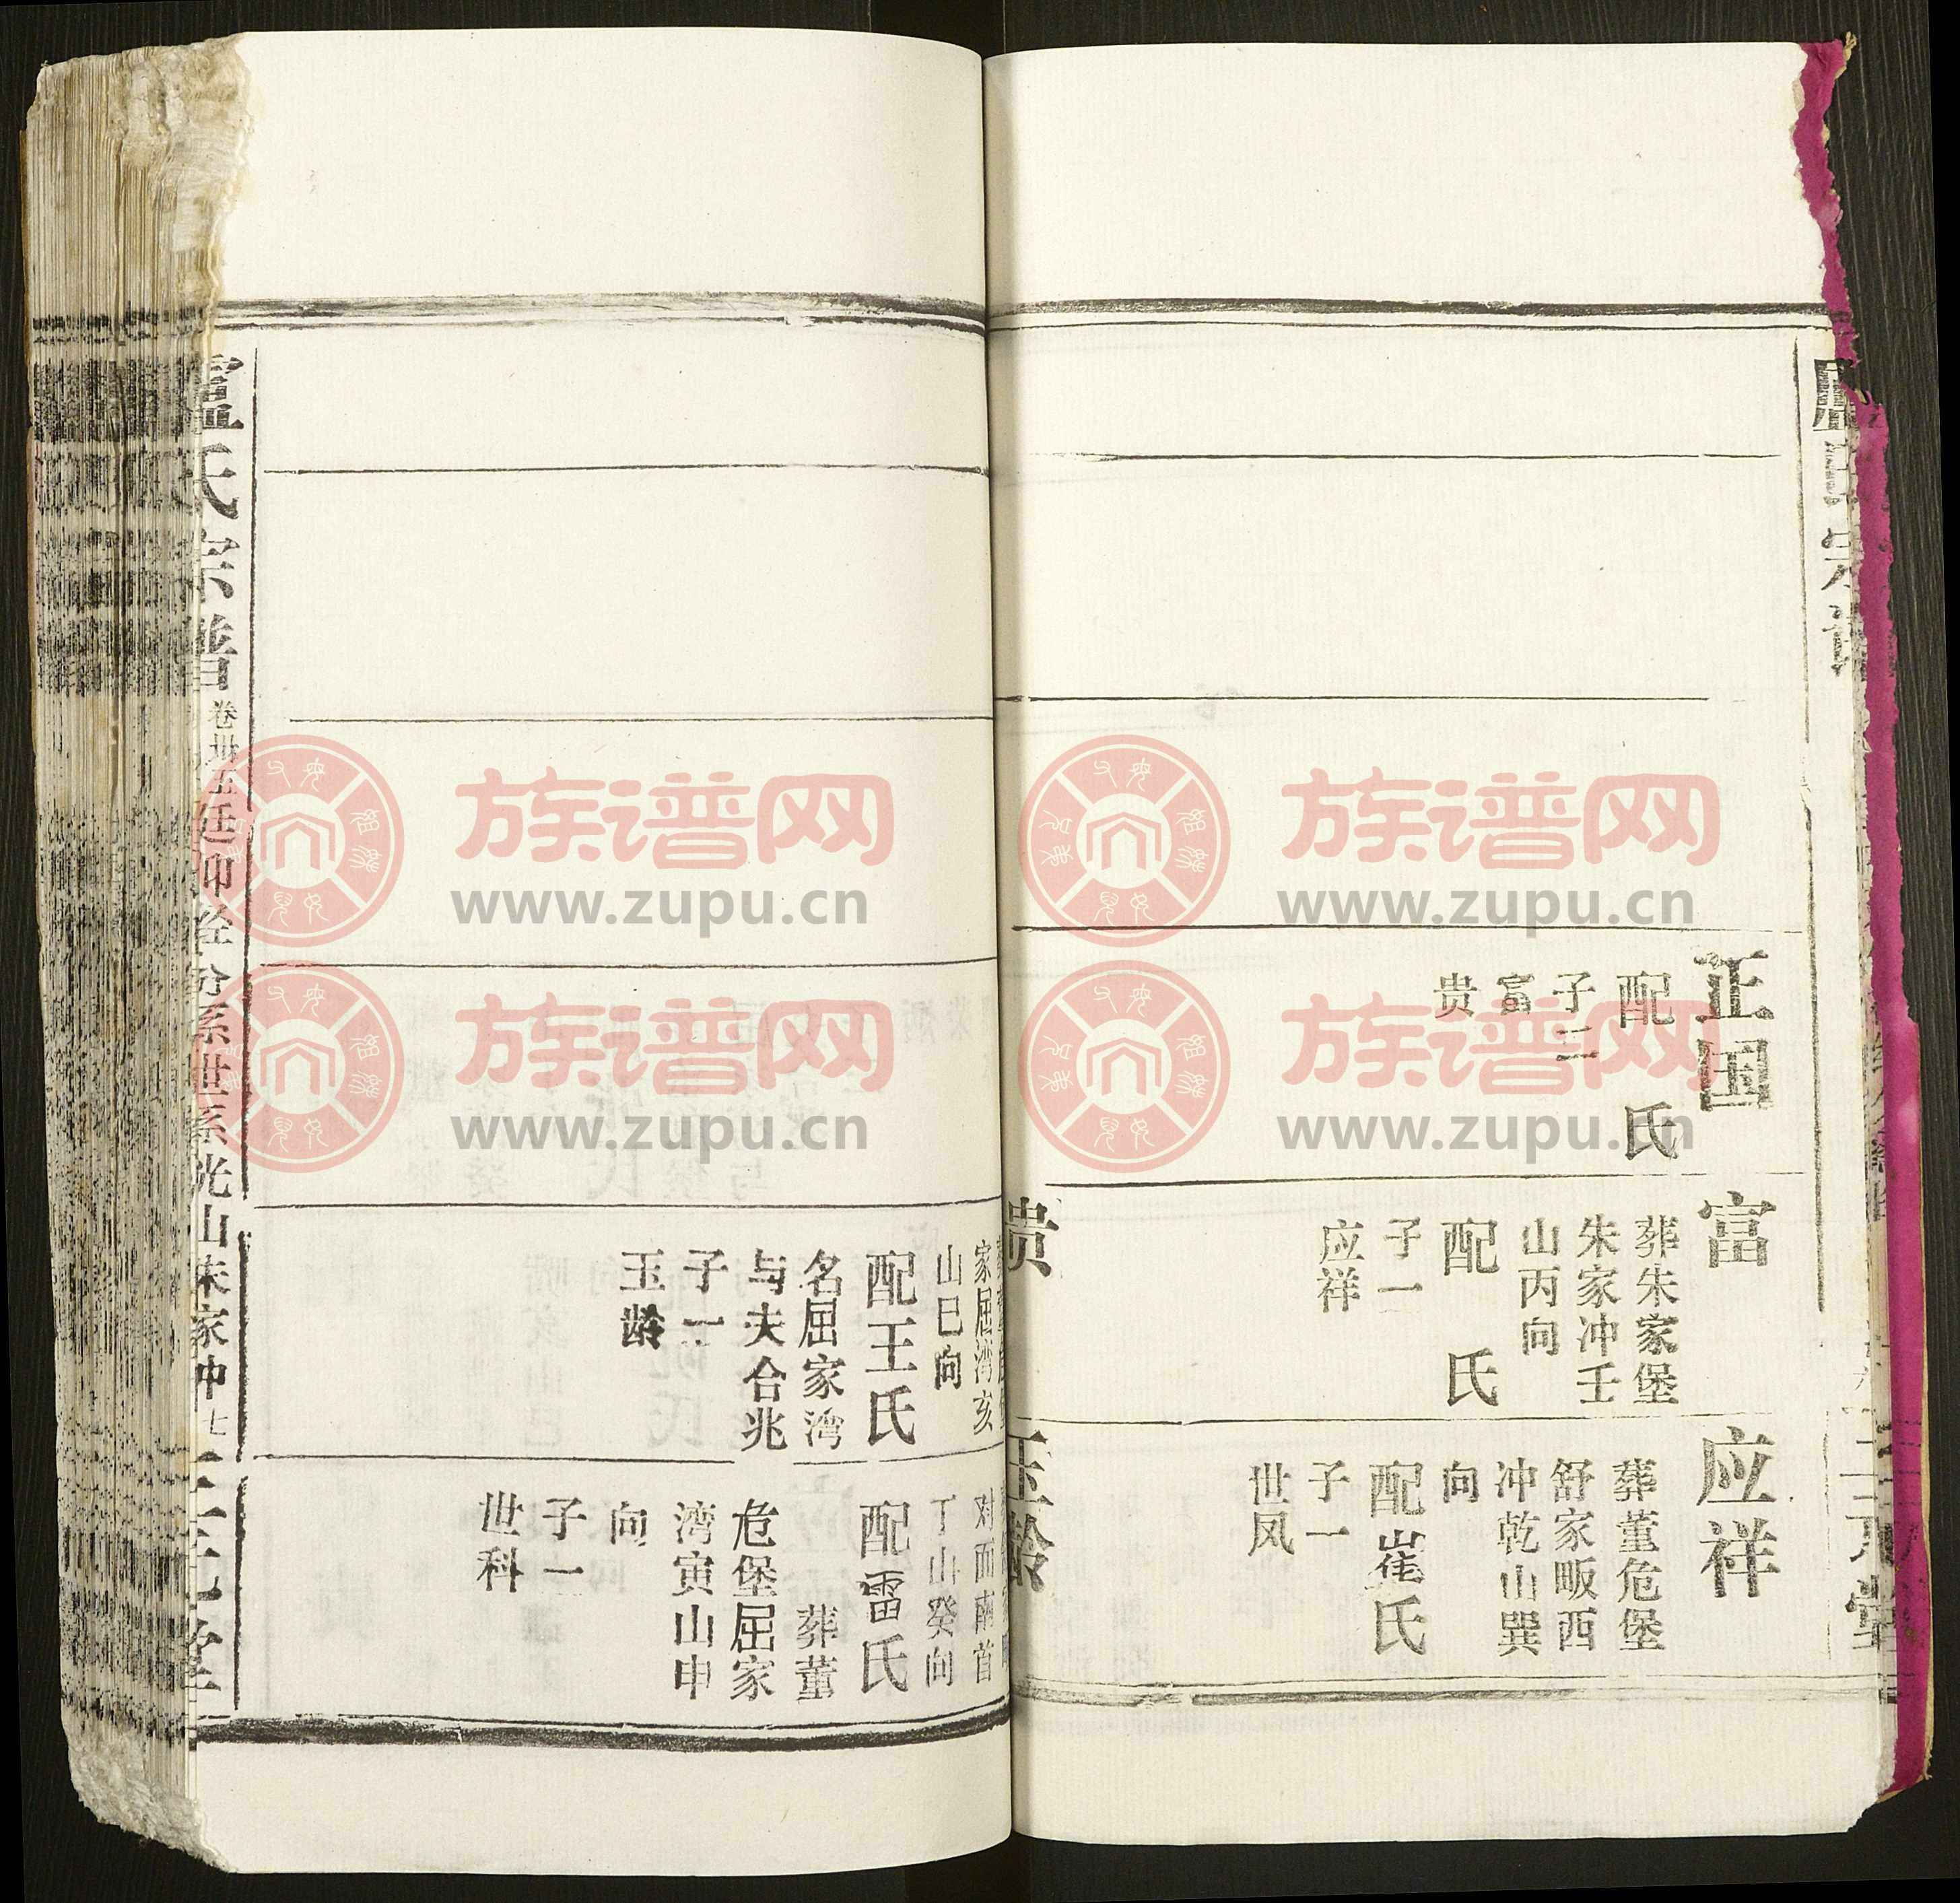 正国
配 氏
子二
富
贵
富
葬朱家堡
朱家冲壬
山丙向
配 氏
子一
应祥
应祥
葬董危堡
舒家畈西
冲乾山巽
向
配崔氏
子一
世凤
贵
家屈湾亥
山巳向
配王氏
名屈家湾
与夫合兆
子一
玉龄
玉龄
对面南首
丁山癸向
配雷氏
葬董
危堡屈家
湾寅山申
向
子一
世科
氏宗谱
卷卅五
廷仲
分系世系光山朱家冲
七
族谱网
www.zupu.cn
族谱网
www.zupu.cn
族谱网
www.zupu.cn
族谱网
www.zupu.cn